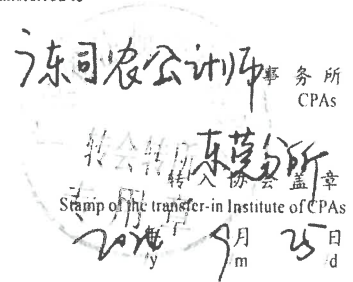 广东司农会计师事务所
CPAs
东莞分所
转入协会盖章
Stamp of the transfer-in Institute of CPAs
年 9月 25日
y m d